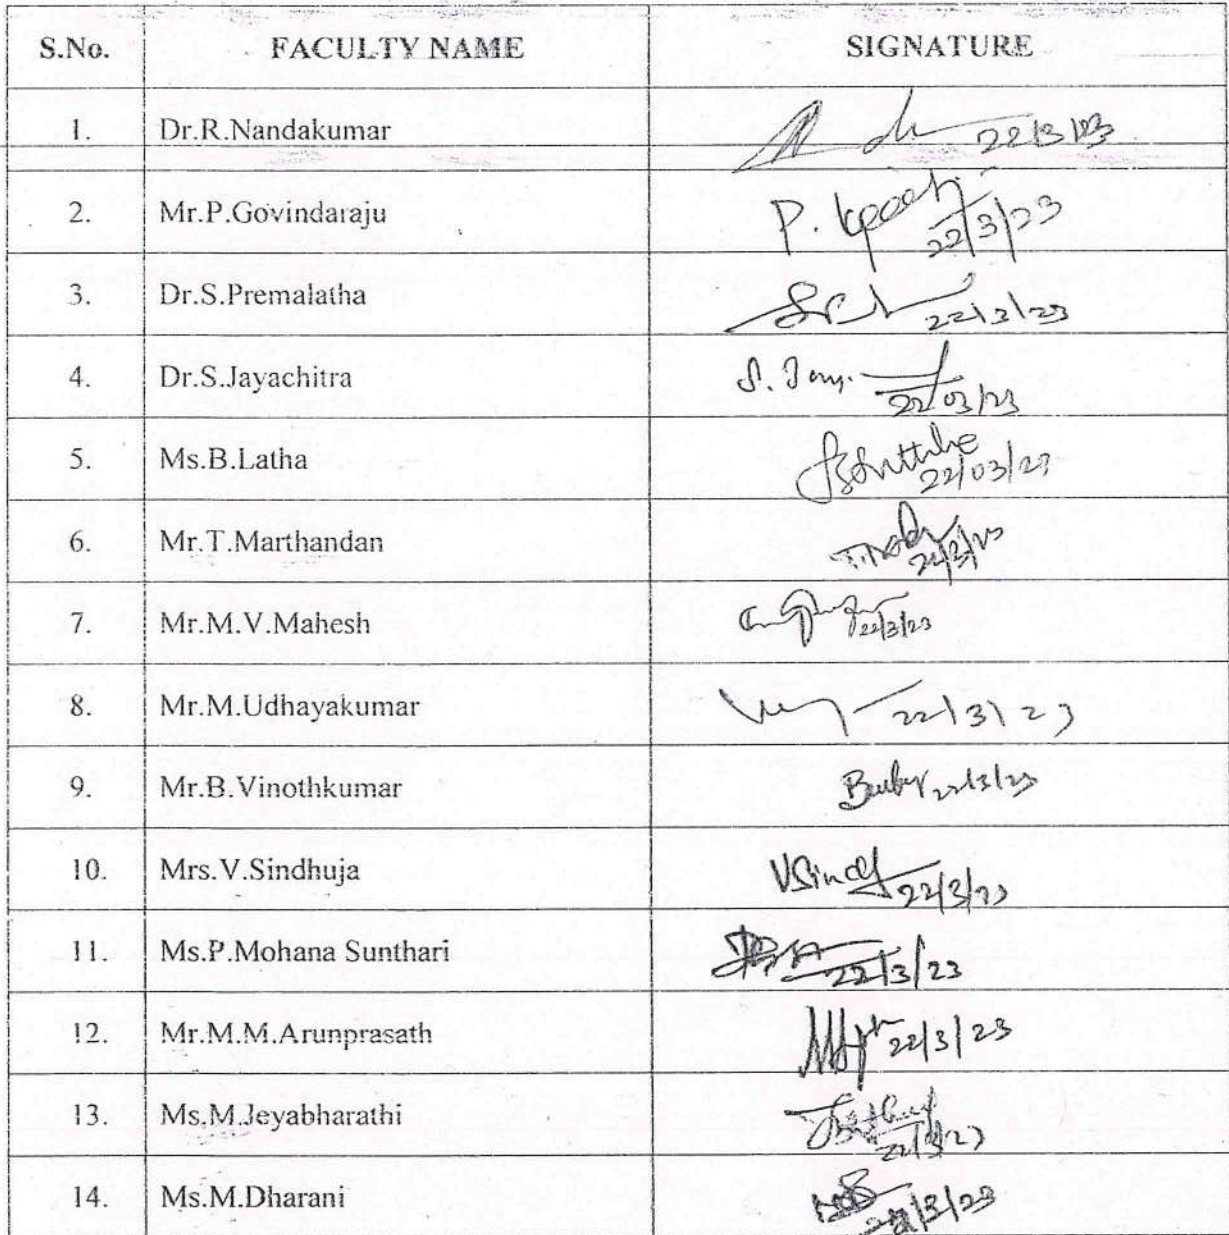 S.No. FACULTY NAME SIGNATURE
1. Dr.R.Nandakumar 22/3/23
2. Mr.P.Govindaraju P. 22/3/23
3. Dr.S.Premalatha 22/3/23
4. Dr.S.Jayachitra S. 22/03/23
5. Ms.B.Latha 22/03/23
6. Mr.T.Marthandan 22/3/23
7. Mr.M.V.Mahesh 22/3/23
8. Mr.M.Udhayakumar 22/3/23
9. Mr.B.Vinothkumar 22/3/23
10. Mrs.V.Sindhuja 22/3/23
11. Ms.P.Mohana Sunthari 22/3/23
12. Mr.M.M.Arunprasath 22/3/23
13. Ms.M.Jeyabharathi 22/3/23
14. Ms.M.Dharani 22/3/23